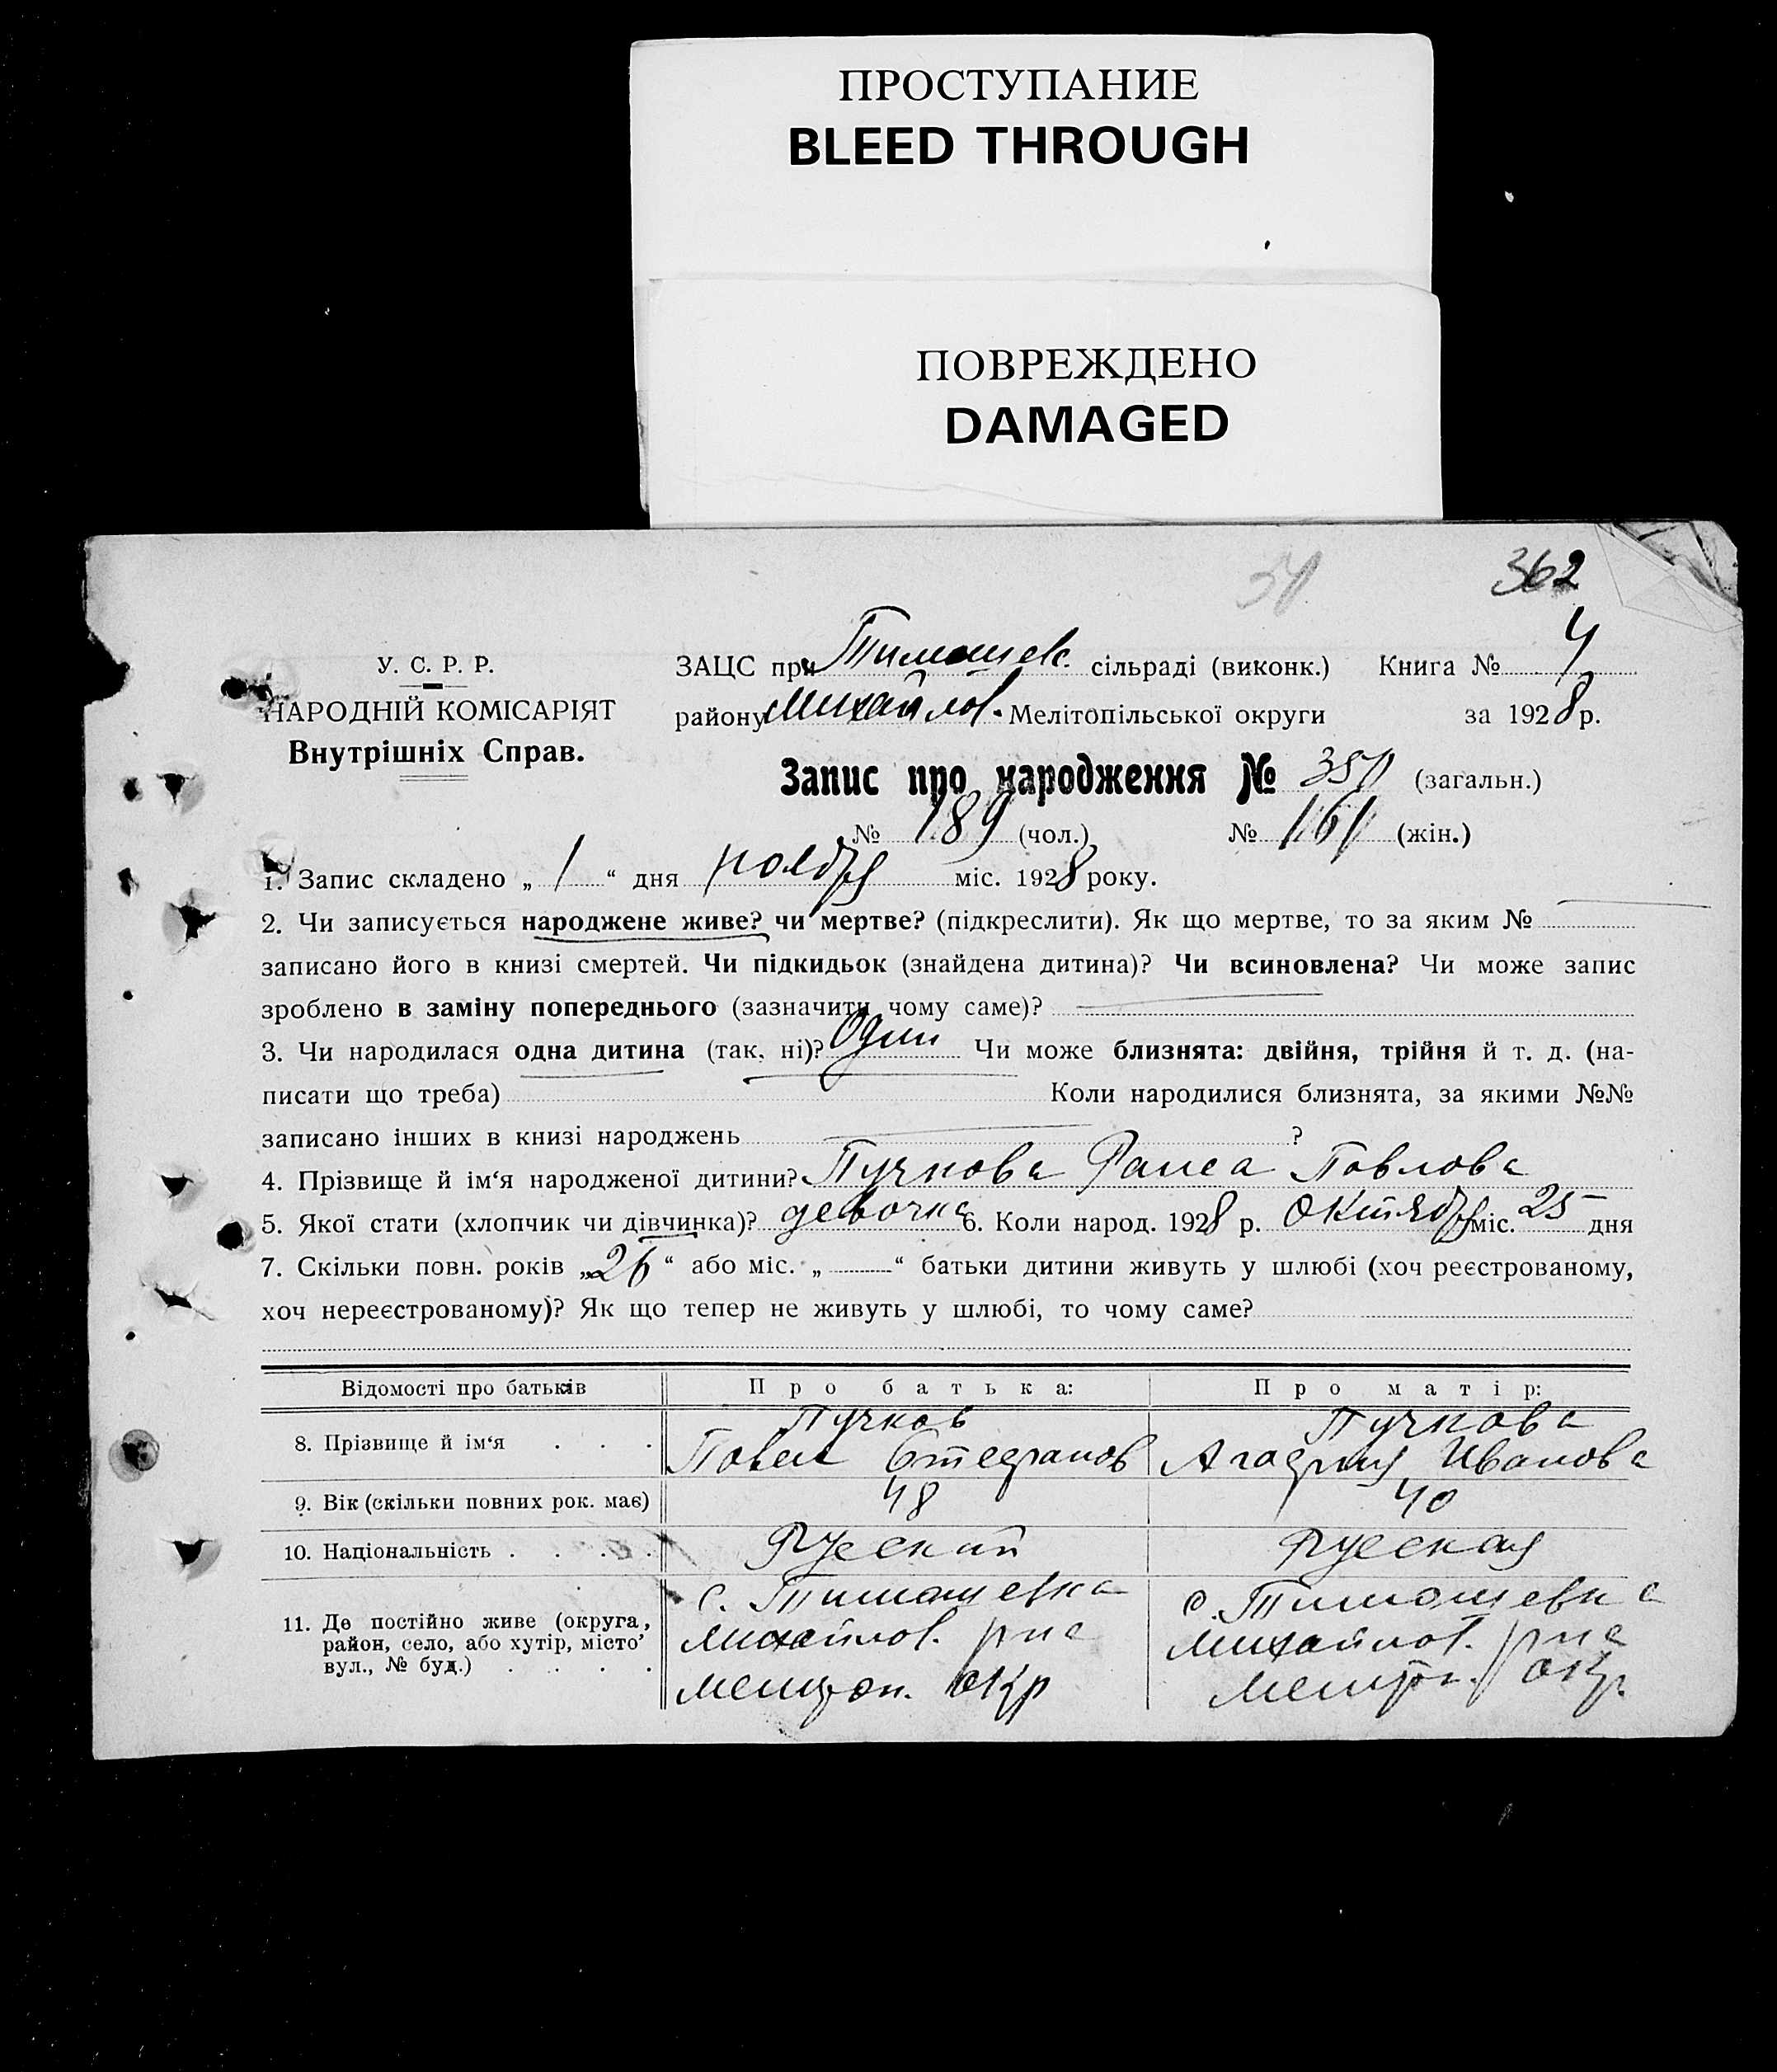 ПРОСТУПАНИЕ
BLEED THROUGH
ПОВРЕЖДЕНО
DAMAGED
362
У. С. Р. Р.
НАРОДНІЙ КОМІСАРІЯТ
Внутрішніх Справ.
ЗАЦС при Тимошев. сільраді (виконк.) Книга № 4
району Михайлов. Мелітопільської округи за 1928 р.
Запис про народження № 350 (загальн.)
№ 189 (чол.) № 161 (жін.)
1. Запис складено „ 1 “ дня ноября міс. 1928 року.
2. Чи записується народжене живе? чи мертве? (підкреслити). Як що мертве, то за яким №
записано його в книзі смертей. Чи підкидьок (знайдена дитина)? Чи всиновлена? Чи може запис
зроблено в заміну попереднього (зазначити чому саме)?
3. Чи народилася одна дитина (так, ні)? Один Чи може близнята: двійня, трійня й т. д. (на-
писати що треба) Коли народилися близнята, за якими №№
записано інших в книзі народжень ?
4. Прізвище й ім‘я народженої дитини? Пучкова Раиса Павлова
5. Якої стати (хлопчик чи дівчинка)? девочка 6. Коли народ. 1928 р. Октября міс. 25 дня
7. Скільки повн. років „26“ або міс. „ “ батьки дитини живуть у шлюбі (хоч реєстрованому,
хоч нереєстрованому)? Як що тепер не живуть у шлюбі, то чому саме?
Відомості про батьків Про батька: Про матір:
8. Прізвище й ім‘я . . . Пучков Пучкова
Павел Стефанов Агафия Иванова
9. Вік (скільки повних рок. має) 48 40
10. Національність . . . . Русский Русская
11. Де постійно живе (округа, с. Тимошевка с. Тимошевка
район, село, або хутір, місто’ Михайлов. рна Михайлов. рна
вул., № буд.) . . . . Мелитоп. окр Мелитоп. окр.